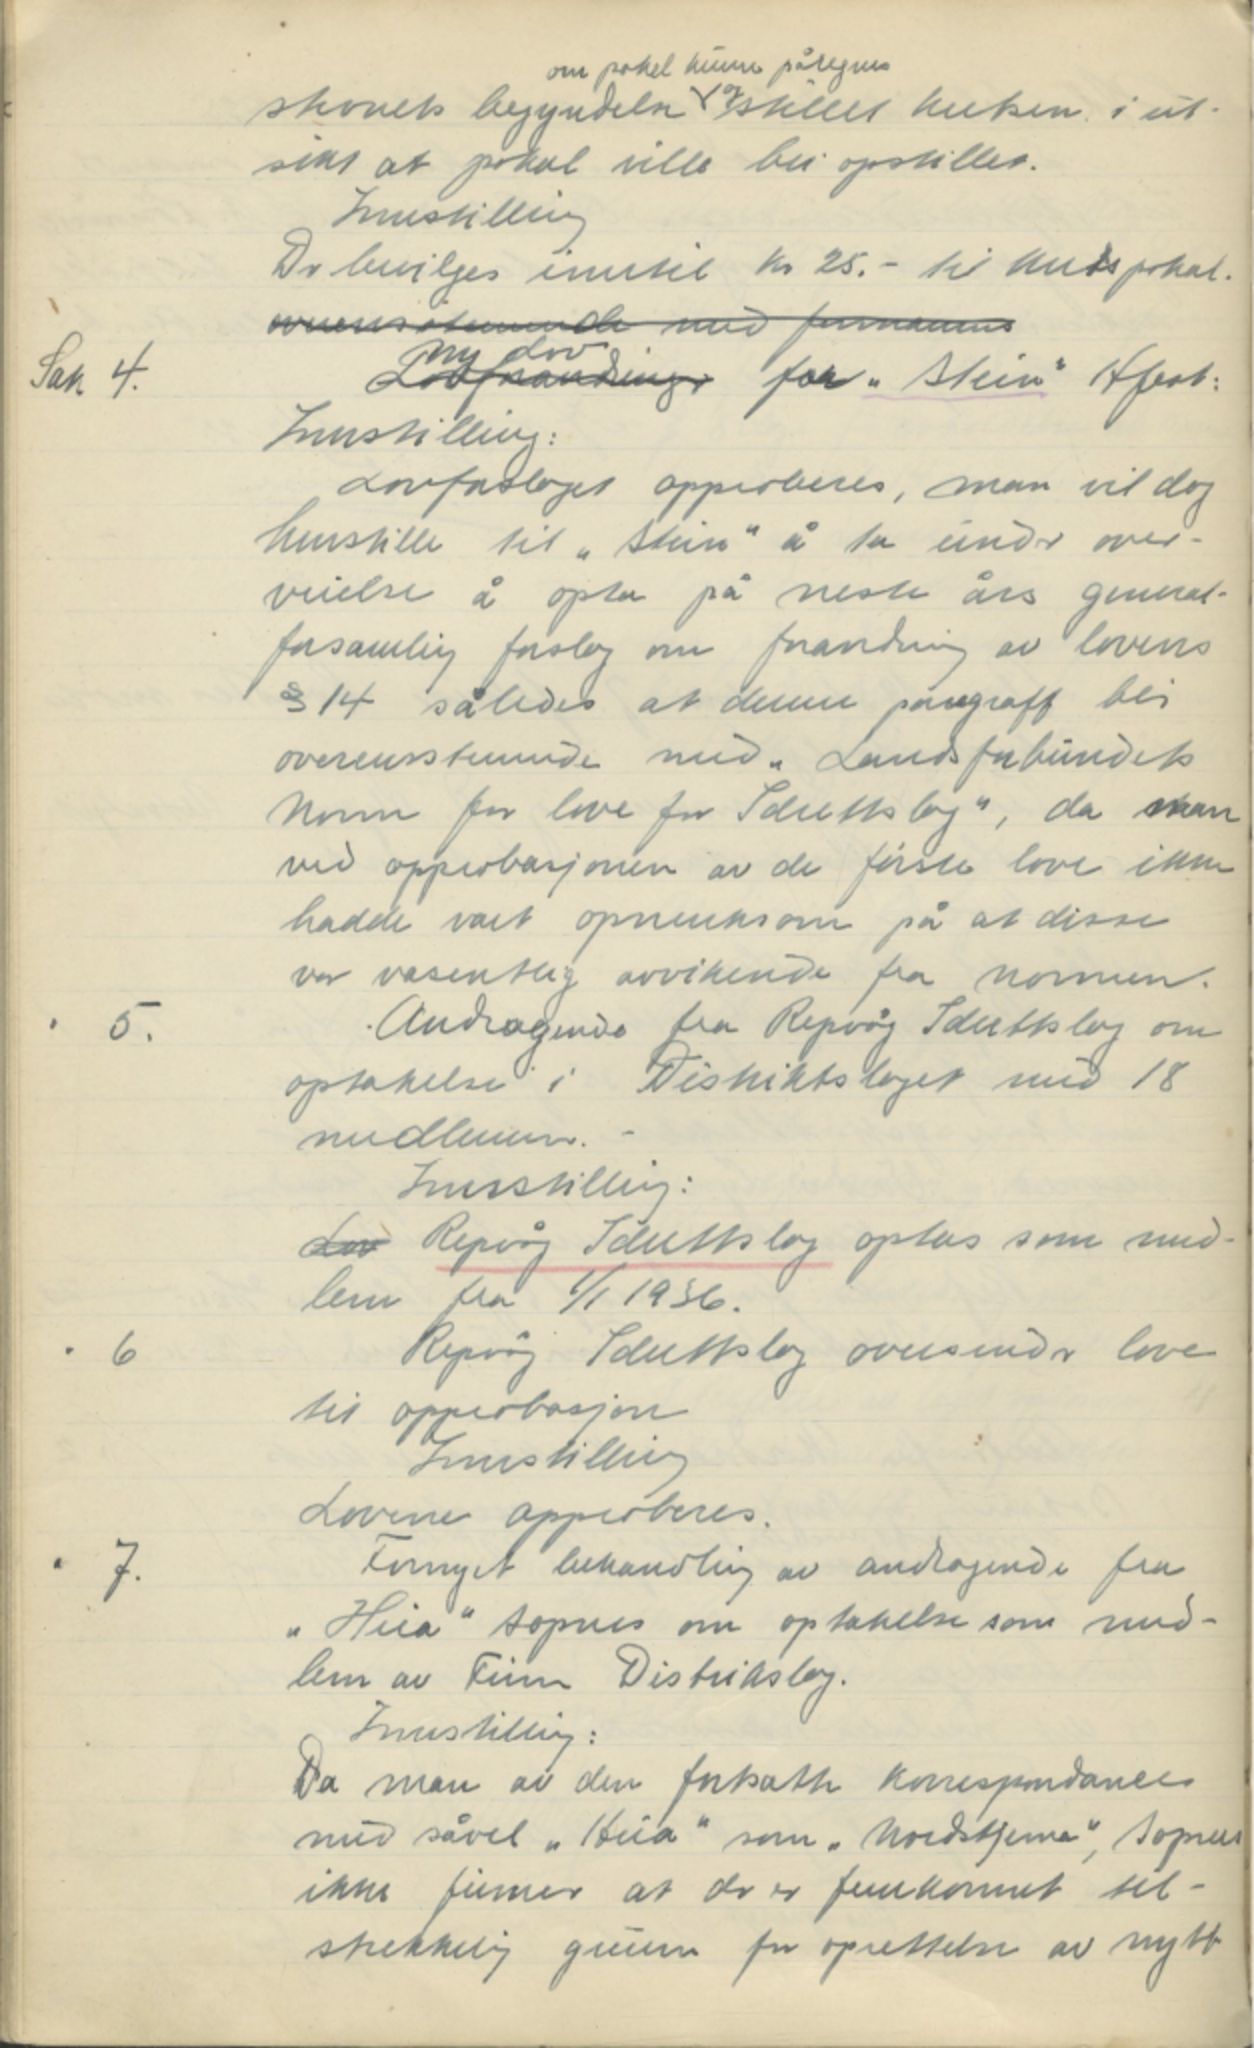 om pokal kunne påregnes
skovets begyndelse og stillet kretsen i ut-
sikt at pokal ville bli opstillet.
Innstilling
Dr bevilges inntil kr 25.- til krets pokal.
overensstemmende med formannens
Sak 4. Lovforandringer ny Lov for "Stein" Hfest:
Innstilling:
Lovforslaget approberes, man vil dog
henstille til "Stein" å ta under over-
veielse å opta på neste års general-
forsamling forslag om forandring av lovens
§ 14 således at denne paragraff bli
overensstemmende med "Landsforbundets
Norm for love for Idrettslag", da man
ved approbasjonen av de første love ikke
hadde vært opmerksom på at disse
var vesentlig avvikende fra normen.
" 5. Andragende fra Repvåg Idrettslag om
optakelse i Distriktslaget med 18
medlemmer. -
Innstilling:
Lov Repvåg Idrettslag optas som med-
lem fra 1/1 1936.
" 6 Repvåg Idrettslag oversender love
til approbasjon
Innstilling
Lovene approberes.
" 7. Fornyet behandling av andragende fra
"Heia" Sopnes om optakelse som med-
lem av Finn Distrikslag.
Innstilling:
Da man av den fortsatte korrespondanse
med såvel "Heia" som "Nordstjerna", Sopnes
ikke finner at dr er fremkommet til-
strekkelig grunn for oprettelse av nytt